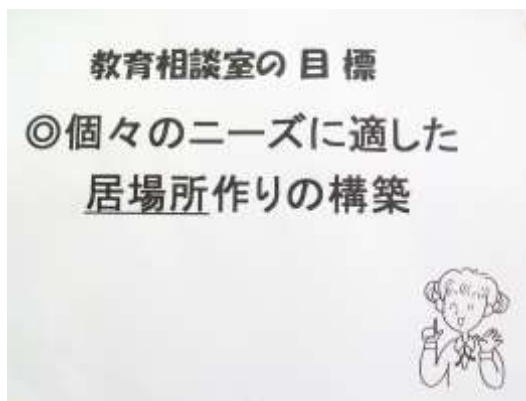 教育相談室の目標
◎個々のニーズに適した
居場所作りの構築